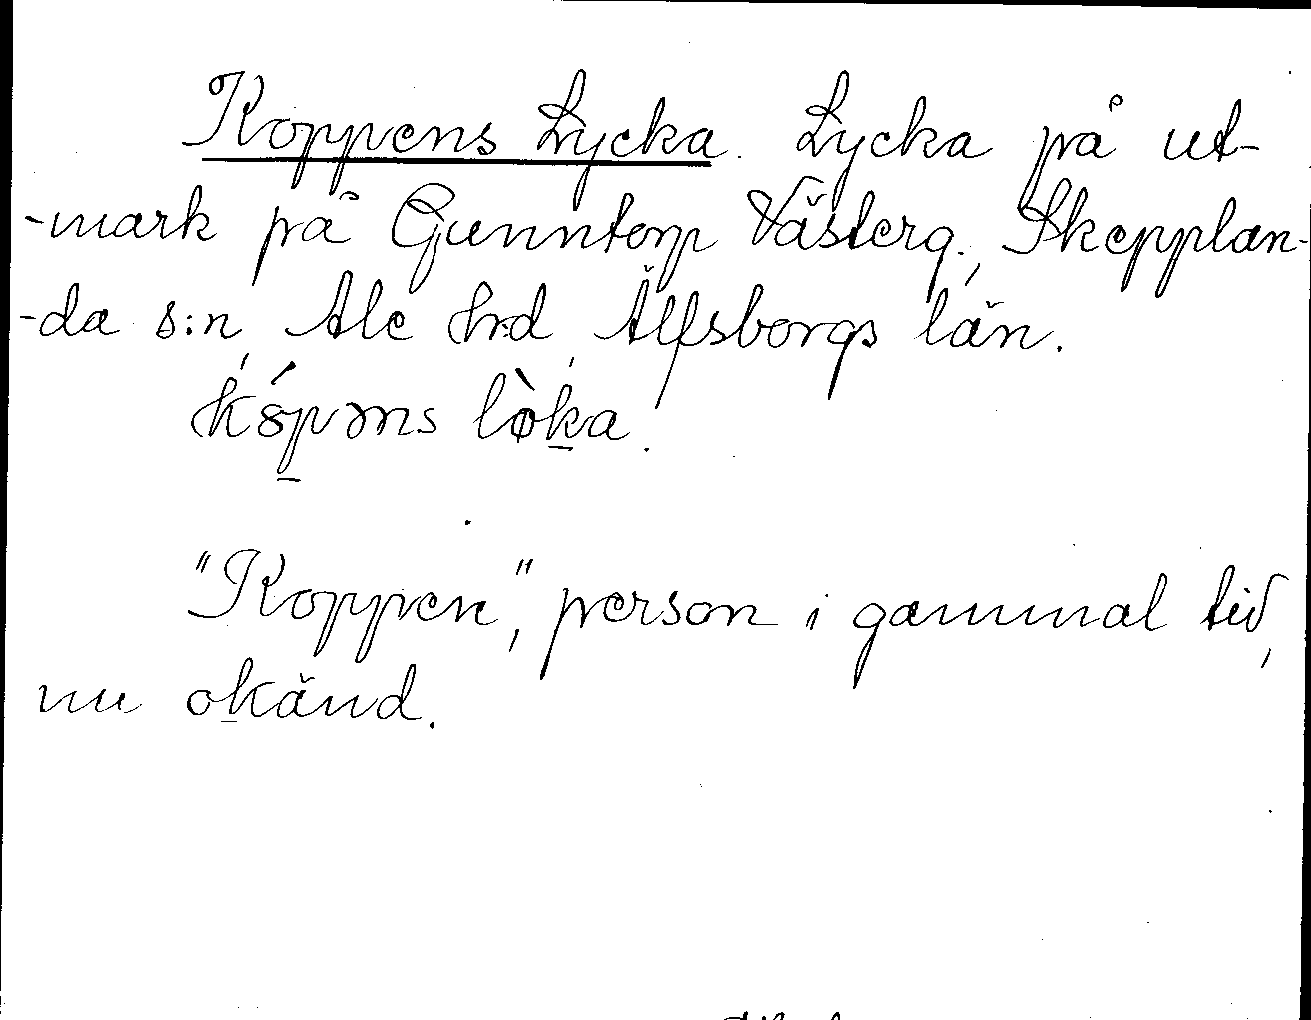 Koppens Lycka. Lycka på ut-
-mark på Gunntorp Västerg., Skepplan-
-da s:n, Ale hrd, Älfsborgs län.
"Koppen", person i gammal tid,
nu okänd.